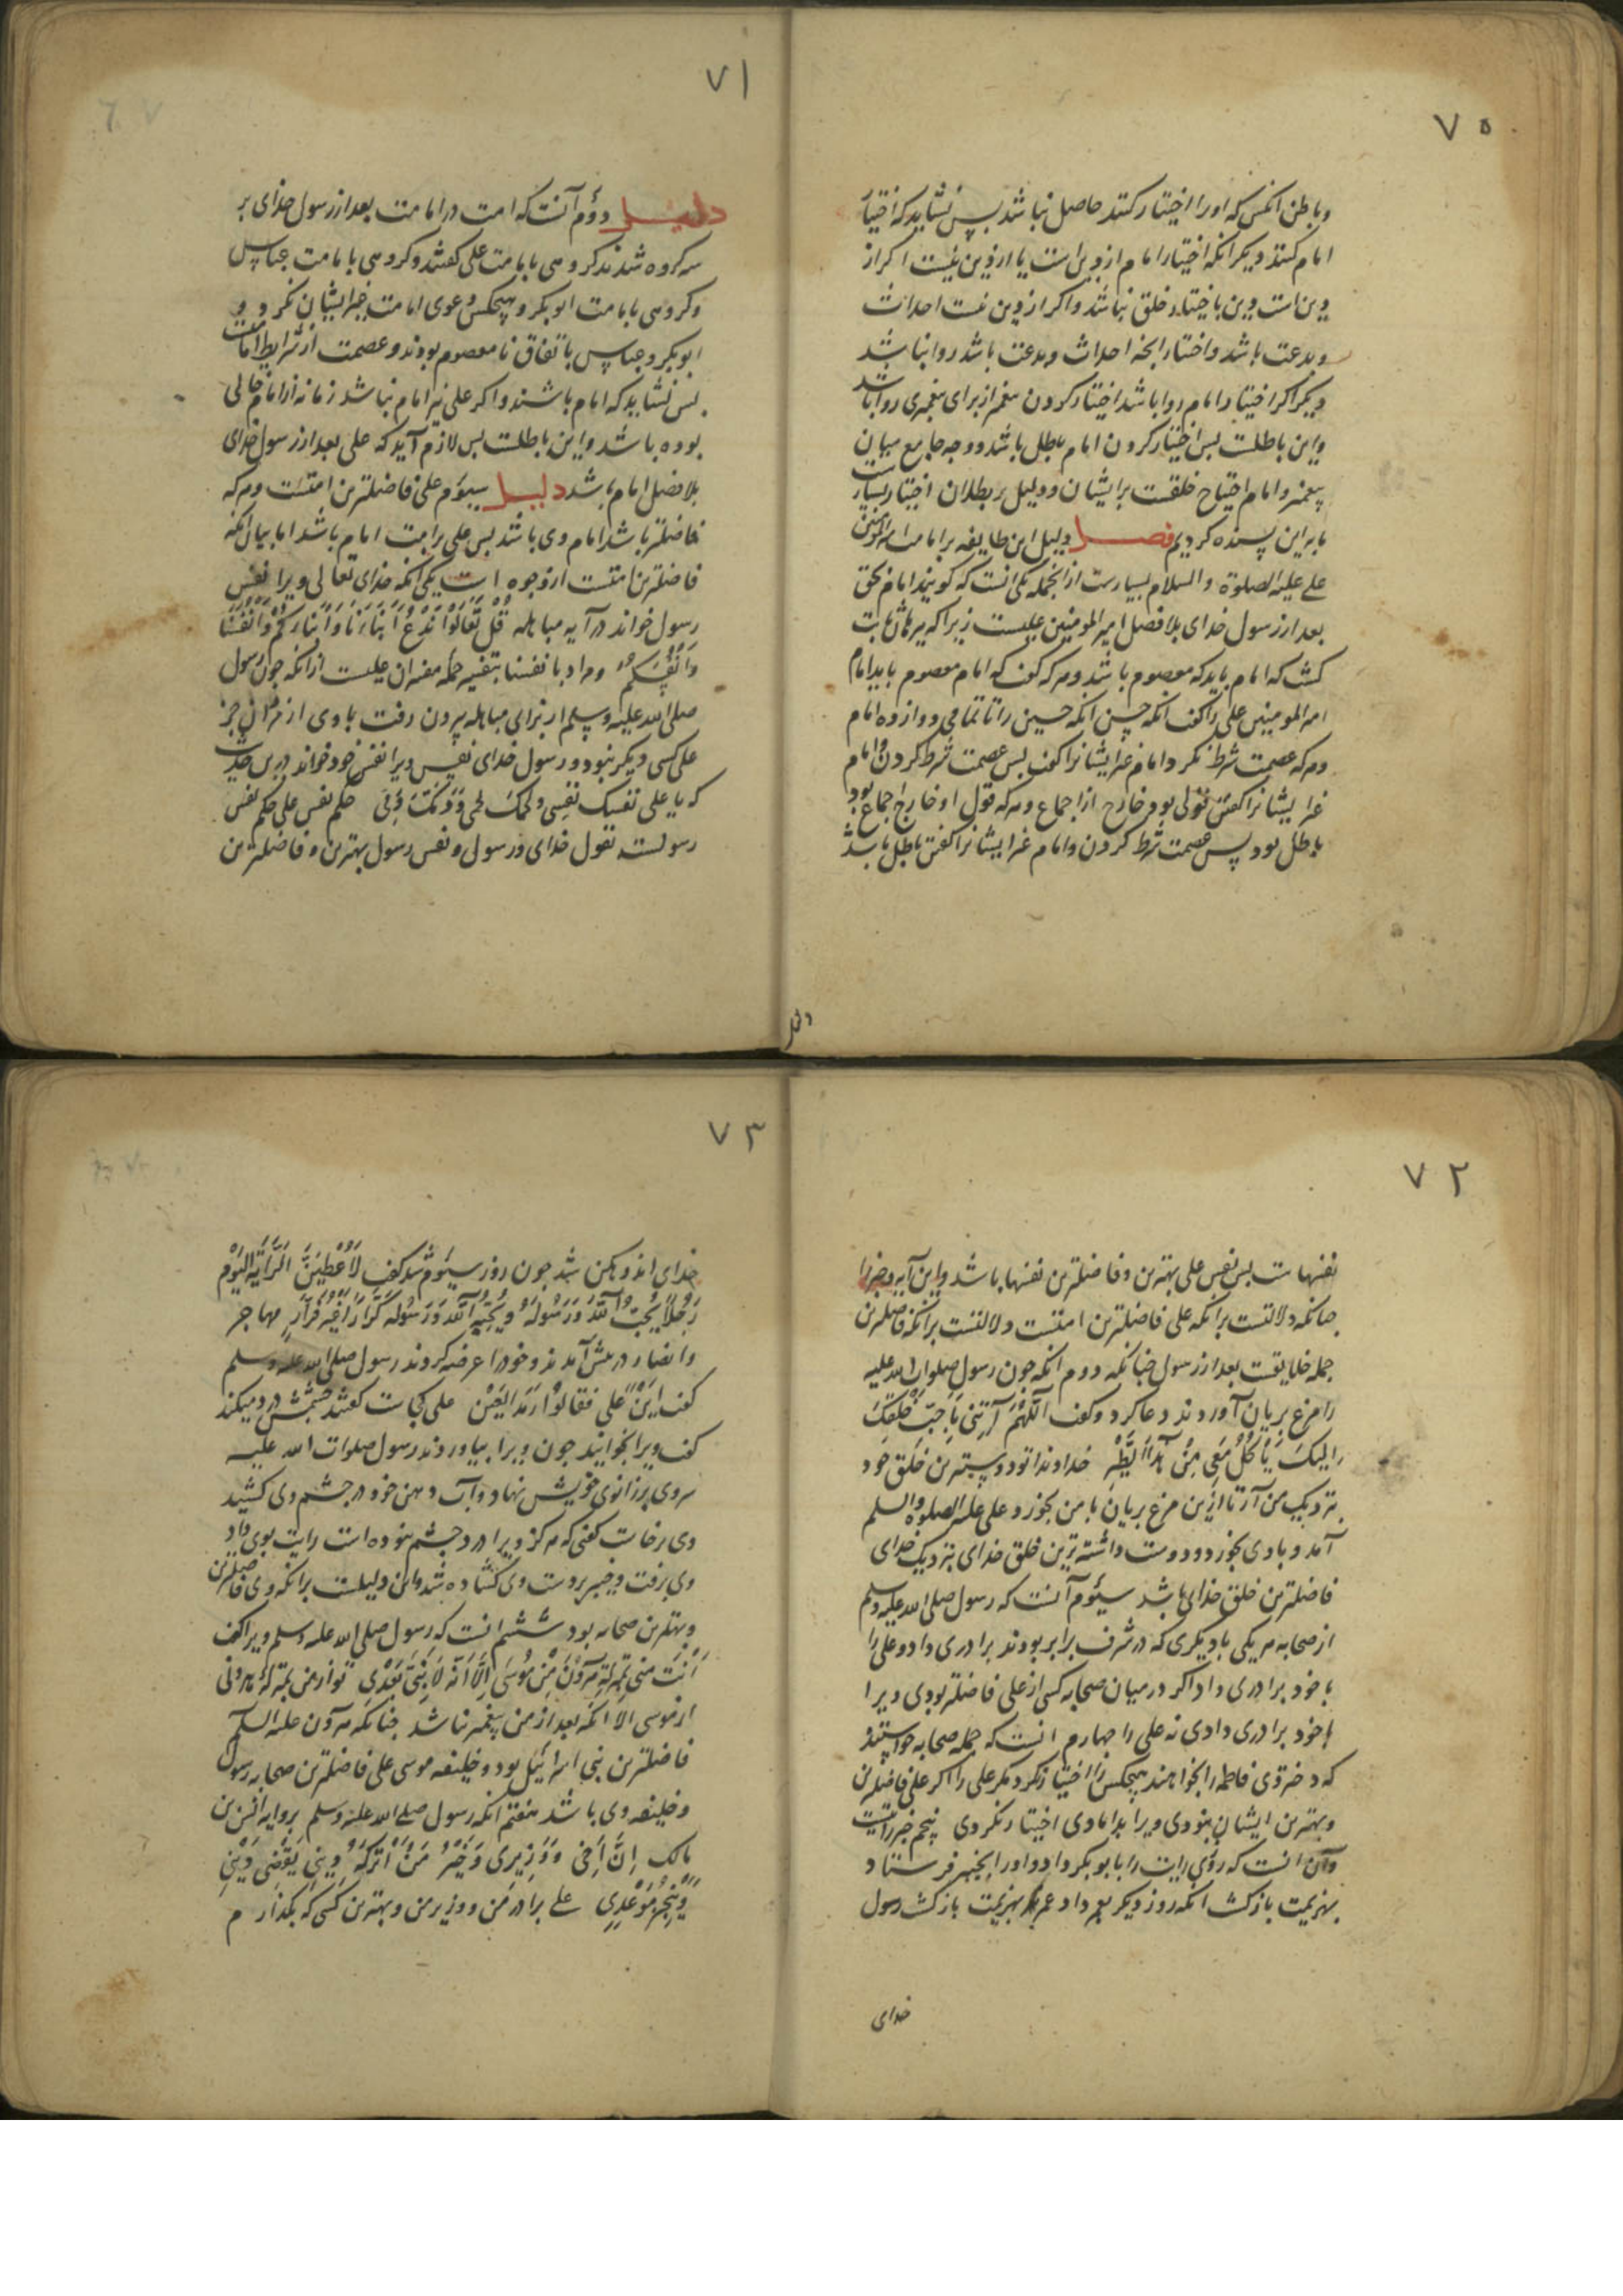 ۷۰
و باطن انکس که او را اختیار کنند حاصل نباشد پس نشاید که اختیار
امام کنند دیگر انکه اختیار امام از دین است یا از دین نیست اکر از
دین است دین باختیار خلق نباشد واکر از دین نیست احداث
و بدعت باشد واختیار انجه احداث وبدعت باشد روا نباشد
دیگر اکر اختیار امام روا باشد اختیار کردن پیغمبر از برای پیغمبری روا باشد
واین باطلست پس اختیار کردن امام باطل باشد ووجه جامع میان
پیغمبر وامام احتیاج خلقست برایشان ودلیل بر بطلان اختیار بسیارست
ما به این بسنده کردیم فصل دلیل این طایفه بر امامت امیرالمؤمنین
علی علیه الصلوة والسلام بسیارست ازانجمله یکی انست که کویند امام بحق
بعد از رسول خدای بلافصل امیر المومنین علیست زیرا که ببرهان ثابت
کشت که امام باید که معصوم باشد وهر که کفت که امام معصوم باید امام
امیر المومنین علی را کفت انکه حسن انکه حسین را تا تمامی دوازده امام
وهر که عصمت شرط نکرد امام غیر ایشانرا کفت پس عصمت شرط کردن وامام
غیر ایشانرا کفتن قولی بود خارج از اجماع وهر که قول او خارج اجماع بود
باطل بود پس عصمت شرط کردن وامام غیر ایشانرا کفتن باطل باشد
۷۱
دلیل دوّم آنست که امت در امامت بعد از رسول خدای بر
سه کروه شدند کروهی بامامت علی کفتند وکروهی بامامت عباس
وکروهی بامامت ابوبکر وهیچکس دعوی امامت غیر ایشان نکرد و
ابوبکر وعباس باتفاق نامعصوم بودند وعصمت از شرایط امامت
پس نشاید که امام باشند واکر علی نیز امام نباشد زمانه از امام خالی
بوده باشد واین باطلست پس لازم آید که علی بعد از رسول خدای
بلافصل امام باشد دلیل سیوّم علی فاضلترین امتست وهر که
فاضلتر باشد امام وی باشد پس علی برامت امام باشد اما بیان انکه
فاضلترین امتست از وجوه است یکی انکه خدای تعالی ویرا نفس
رسول خواند در آیه مباهله قُلْ تَعَالَوْا نَدْعُ أَبْنَاءَنَا وَأَبْنَاءَكُمْ وَأَنْفُسَنَا
وَأَنْفُسَكُمْ ومراد بانفسنا بتفسیر جمله مفسران علیست ازانکه جون رسول
صلی الله علیه وسلم از برای مباهله بیرون رفت با وی از مردان جز
علی کسی دیگر نبود ورسول خدای نفس ویرا نفس خود خواند درین حدیث
که یا علی نفسک نفسی ولحمک لحمی ودمک دمی حکم نفس علی حکم نفس
رسولست بقول خدای ورسول ونفس رسول بهترین وفاضلترین
۷۲
نفسهاست پس نفس علی بهترین وفاضلترین نفسها باشد واین آیه وخبر را
جنانکه دلالتست برانکه علی فاضلترین امتست دلالتست برانکه فاضلترین
جمله خلایقست بعد از رسول جنانکه دوم انکه جون رسول صلوات الله علیه
را مرغ بریان آوردند دعا کرد وکفت اَللّٰهُمَّ ائْتِنِی بِأَحَبِّ خَلْقِکَ
اِلَیْکَ یَأْکُلُ مَعِی مِنْ هٰذَا الطَّیْرِ خداوندا تو دوستترین خلق خود
بنزدیک من آر تا ازین مرغ بریان با من بخورد و علی علیه الصلوة والسلم
آمد وبا وی بخورد ودوست داشته ترین خلق خدای بنزدیک خدای
فاضلترین خلق خدای باشد سیُوم آنست که رسول صلی الله علیه وسلم
از صحابه هر یکی با دیگری که در شرف برابر بودند برادری داد وعلی را
با خود برادری داد اکر در میان صحابه کسی از علی فاضلتر بودی ویرا
با خود برادری دادی نه علی را جهارم انست که جمله صحابه خواستند
که دختر وی فاطمه را بخواهند هیچکس را اختیار نکرد مکر علی را اکر علی فاضلترین
وبهترین ایشان نبودی ویرا بدامادی اختیار نکردی پنجم خبر رایتست
وآن انست که روزی رایت را بابوبکر داد واو را بخیبر فرستاد
بهزیمت بازکشت انکه روز دیگر بعمر داد عمر بهزیمت بازکشت رسول
خدای
۷۳
خدای اندوهکین شد جون روز سیُوم شد کفت لَأُعْطِیَنَّ الرَّایَةَ الْیَوْمَ
رَجُلًا یُحِبُّ اللّٰهَ وَرَسُولَهُ وَیُحِبُّهُ اللّٰهُ وَرَسُولُهُ کَرَّارًا غَیْرَ فَرَّارٍ مهاجر
وانصار در پیش آمدند وخود را عرضه کردند رسول صلی الله علیه وسلم
کفت اَیْنَ عَلِی فَقَالُوا رَمَدَ الْعَیْنِ علی کجاست کفتند چشمش درد میکند
کفت ویرا بخوانید جون ویرا بیاوردند رسول صلوات الله علیه
سر وی بر زانوی خویش نهاد وآب دهن خود در جشم وی کشید
وی برخاست کفتی که هرکز ویرا درد جشم نبوده است رایت بوی داد
وی برفت وخیبر بر دست وی کشاده شد واین دلیلست برانکه وی فاضلترین
وبهترین صحابه بود ششم انست که رسول صلی الله علیه وسلم ویرا کفت
أَنْتَ مِنِّی بِمَنْزِلَةِ هَرُونَ مِنْ مُوسَی اِلَّا أَنَّهُ لَا نَبِیَّ بَعْدِی تو از من بمنزله هرونی
از موسی الا انکه بعد از من پیغمبر نباشد جنانکه هرون علیه السلم
فاضلترین بنی اسرائیل بود وخلیفه موسی علی فاضلترین صحابه رسول
وخلیفه وی باشد هفتم انکه رسول صلی الله علیه وسلم بروایه انس بن
مالک إِنَّ أَخِی وَوَزِیرِی وَخَیْرَ مَنْ أَتْرُکُهُ یَقْضِی دَیْنِی
وَیُنْجِزُ مَوْعِدِی علی برادر من ووزیر من وبهترین کسی که بکذارم